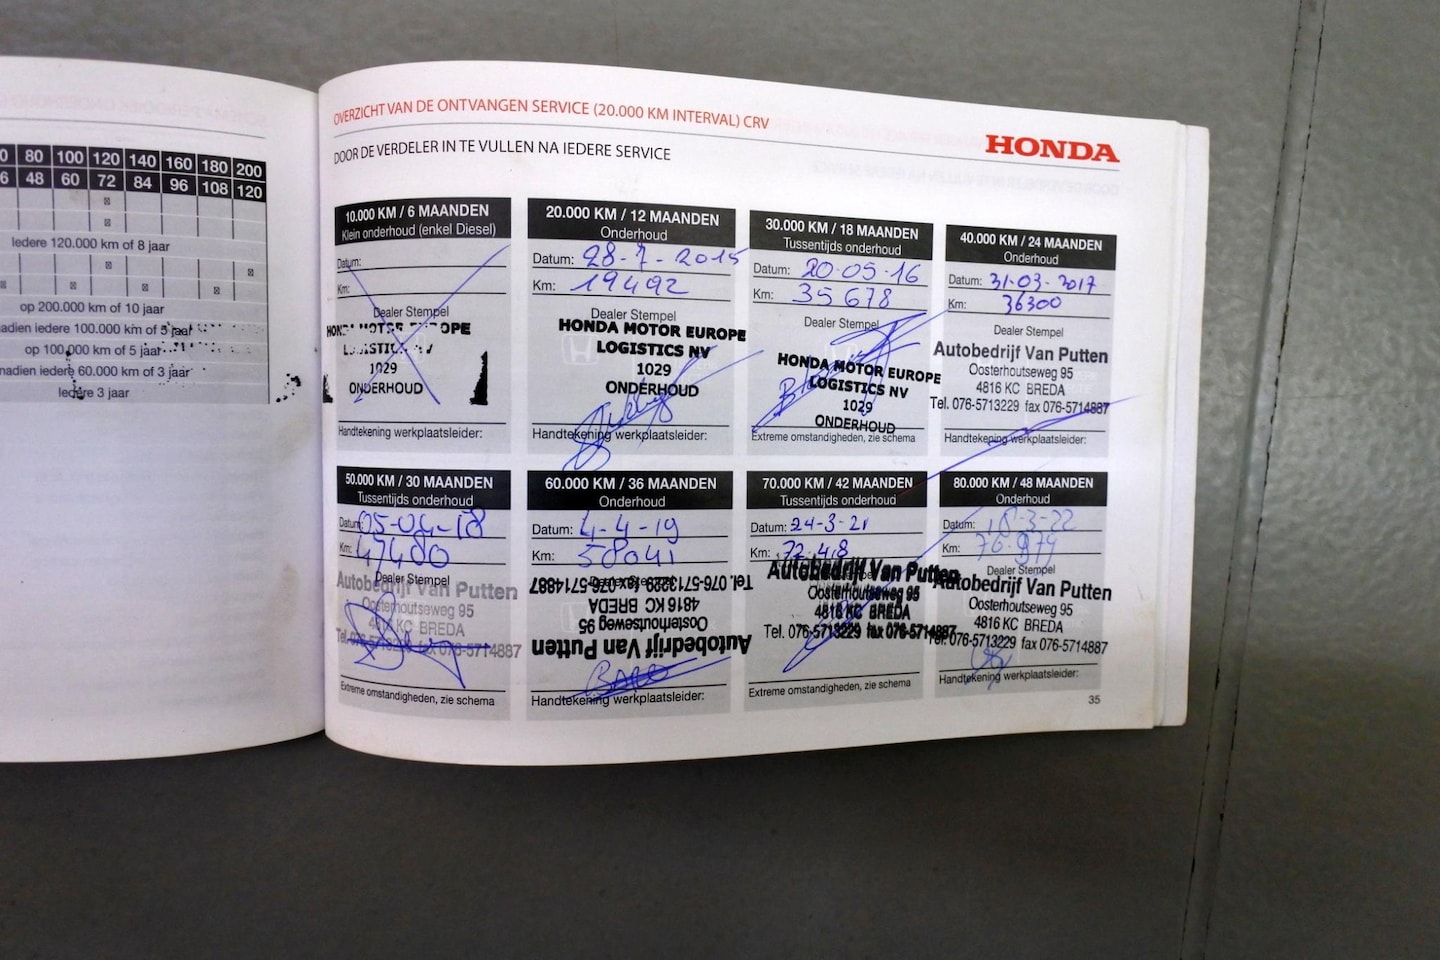 0 80 100 120 140 160 180 200
6 48 60 72 84 96 108 120
Iedere 120.000 km of 8 jaar
op 200.000 km of 10 jaar
nadien iedere 100.000 km of 5 jaar
op 100.000 km of 5 jaar
nadien iedere 60.000 km of 3 jaar
Iedere 3 jaar
OVERZICHT VAN DE ONTVANGEN SERVICE (20.000 KM INTERVAL) CRV
HONDA
DOOR DE VERDELER IN TE VULLEN NA IEDERE SERVICE
10.000 KM / 6 MAANDEN
Klein onderhoud (enkel Diesel)
Datum:
Km:
Dealer Stempel
HONDA MOTOR EUROPE
LOGISTICS NV
1029
ONDERHOUD
Handtekening werkplaatsleider:
20.000 KM / 12 MAANDEN
Onderhoud
Datum: 28-7-2015
Km: 19492
Dealer Stempel
HONDA MOTOR EUROPE
LOGISTICS NV
1029
ONDERHOUD
Handtekening werkplaatsleider:
30.000 KM / 18 MAANDEN
Tussentijds onderhoud
Datum: 20-05-16
Km: 35678
Dealer Stempel
HONDA MOTOR EUROPE
LOGISTICS NV
1029
ONDERHOUD
Extreme omstandigheden, zie schema
40.000 KM / 24 MAANDEN
Onderhoud
Datum: 31-03-2017
Km: 36300
Dealer Stempel
Autobedrijf Van Putten
Oosterhoutseweg 95
4816 KC BREDA
Tel. 076-5713229 fax 076-5714887
Handtekening werkplaatsleider:
50.000 KM / 30 MAANDEN
Tussentijds onderhoud
Datum: 05-04-18
Km: 47480
Dealer Stempel
Autobedrijf Van Putten
Oosterhoutseweg 95
4816 KC BREDA
Tel. 076-5713229 fax 076-5714887
Extreme omstandigheden, zie schema
60.000 KM / 36 MAANDEN
Onderhoud
Datum: 4-4-19
Km: 58041
Dealer Stempel
Autobedrijf Van Putten
Oosterhoutseweg 95
4816 KC BREDA
Tel. 076-5713229 fax 076-5714887
Handtekening werkplaatsleider:
70.000 KM / 42 MAANDEN
Tussentijds onderhoud
Datum: 24-3-21
Km: 72.418
Dealer Stempel
Autobedrijf Van Putten
Oosterhoutseweg 95
4816 KC BREDA
Tel. 076-5713229 fax 076-5714887
Extreme omstandigheden, zie schema
80.000 KM / 48 MAANDEN
Onderhoud
Datum: 18-3-22
Km: 76.974
Dealer Stempel
Autobedrijf Van Putten
Oosterhoutseweg 95
4816 KC BREDA
Tel. 076-5713229 fax 076-5714887
Handtekening werkplaatsleider:
35